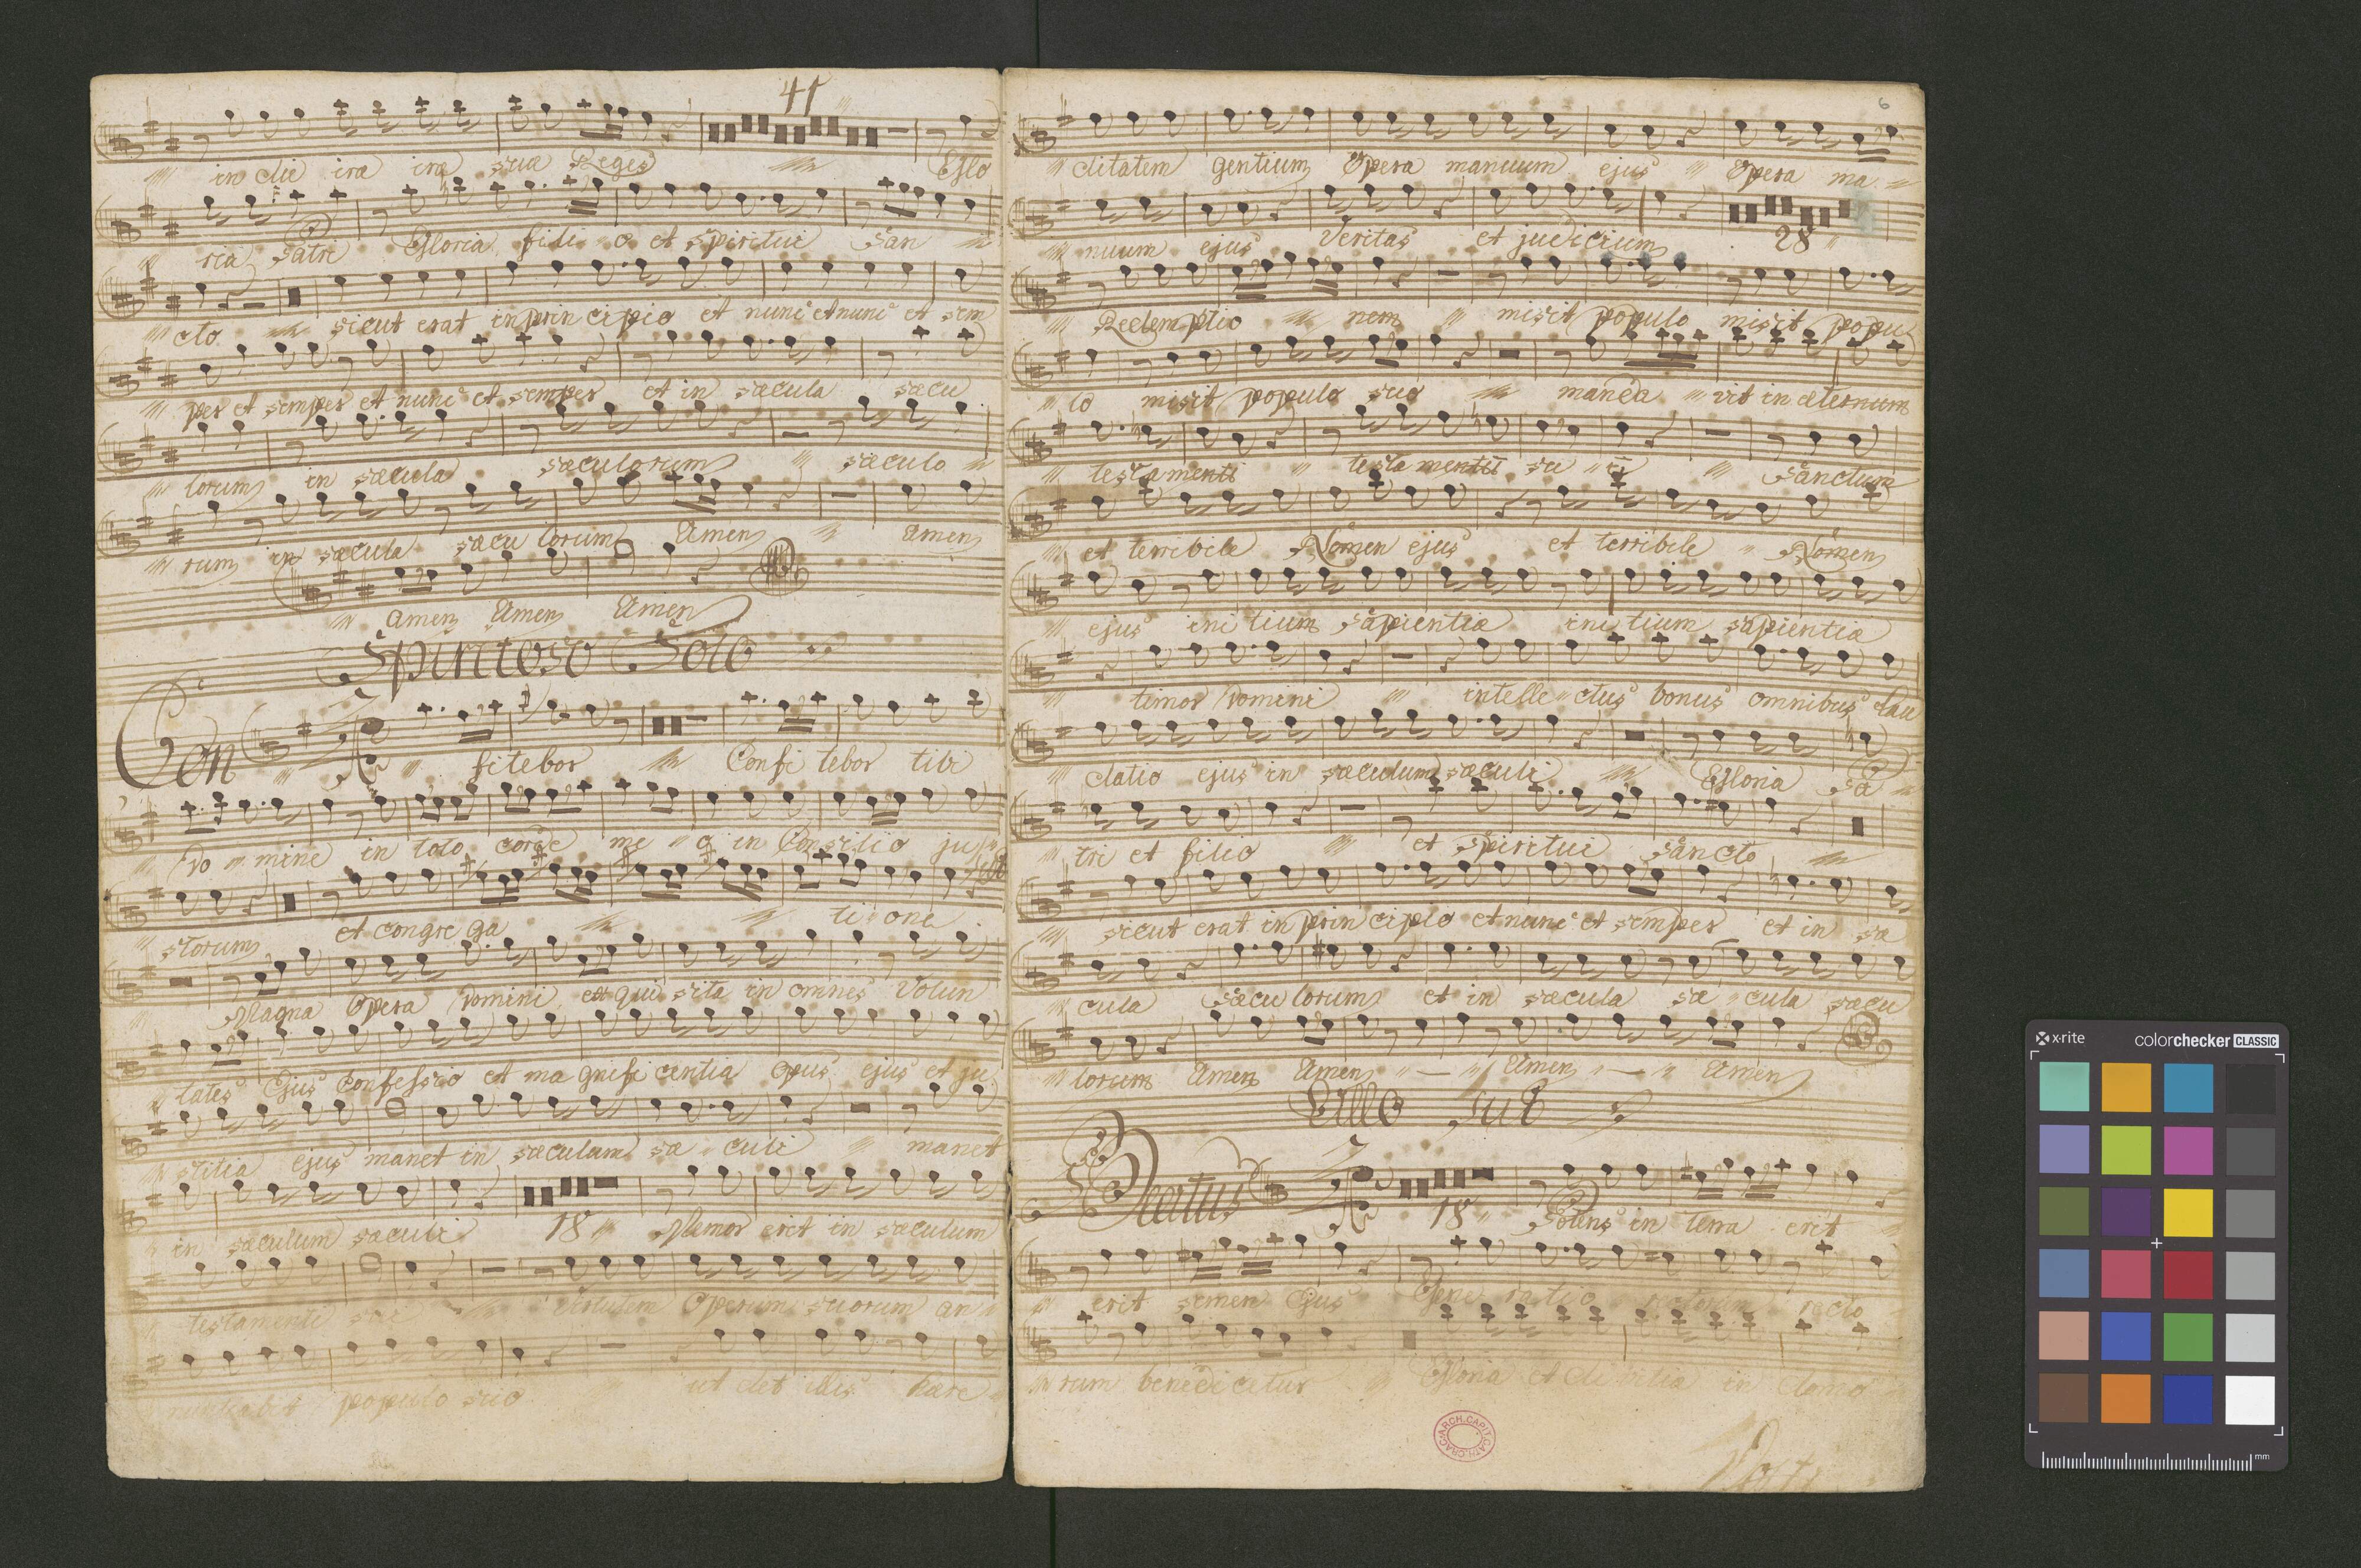 41
in die iræ iræ suæ Reges Glo
ria Patri Gloria filio et Spiritui San
cto sicut erat in principio et nunc et nunc et sem
per et semper et nunc et semper et in sæcula sæcu
lorum in sæcula sæculorum sæculo
rum in sæcula sæculorum Amen Amen
amen Amen Amen
Spiritoso Solo
Con fitebor Confitebor tibi
Domine in toto corde meo in Consilio ju
storum et congrega tione
Magna Opera Domini exquisita in omnes Volun
tates Ejus Confessio et magnificentia opus ejus et ju
stitia ejus manet in sæculum sæculi manet
in sæculum sæculi 18 Memor erit in sæculum
testamenti sui Virtutem Operum suorum an
nuntiabit populo suo ut det illis hære
6
ditatem gentium Opera manuum ejus Opera ma
nuum ejus Veritas et judicium 28
Redemptionem misit populo misit popu
lo misit populo suo manda vit in æternum
testamenti testamenti su i Sanctum
et terribile Nomen ejus et terribile Nomen
ejus initium sapientiæ initium sapientiæ
timor Domini intellectus bonus omnibus lau
datio ejus in sæculum sæculi Gloria Pa
tri et filio et Spiritui Sancto
sicut erat in principio et nunc et semper et in sæ
cula sæculorum et in sæcula sæcula sæcu
lorum Amen Amen Amen Amen
Beatus 18 Potens in terra erit
erit semen Ejus Generatio rectorum recto
rum benedicetur Gloria et divitiæ in domo
ARCH. CAPIT. CATH. CRAC.
x-rite colorchecker CLASSIC
mm